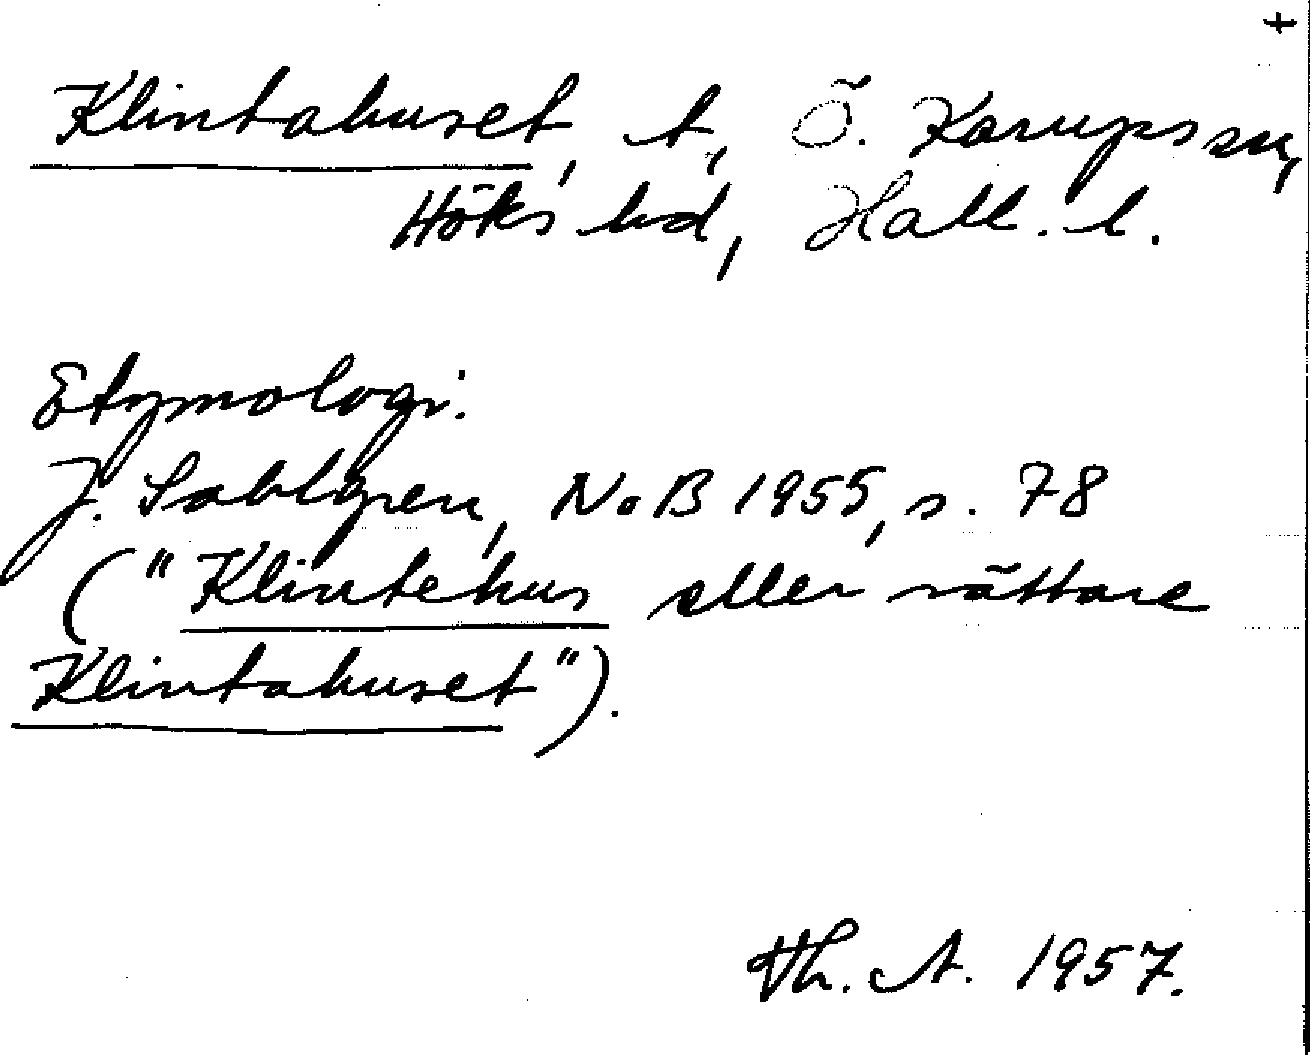 +
Klintahuset, t, Ö. Karups sn,
Höks hd, Hall. l.
Etymologi:
J. Sahlgren, NoB 1955, s. 78
("Klintehus eller rättare
Klintahuset").
Th. A. 1957.